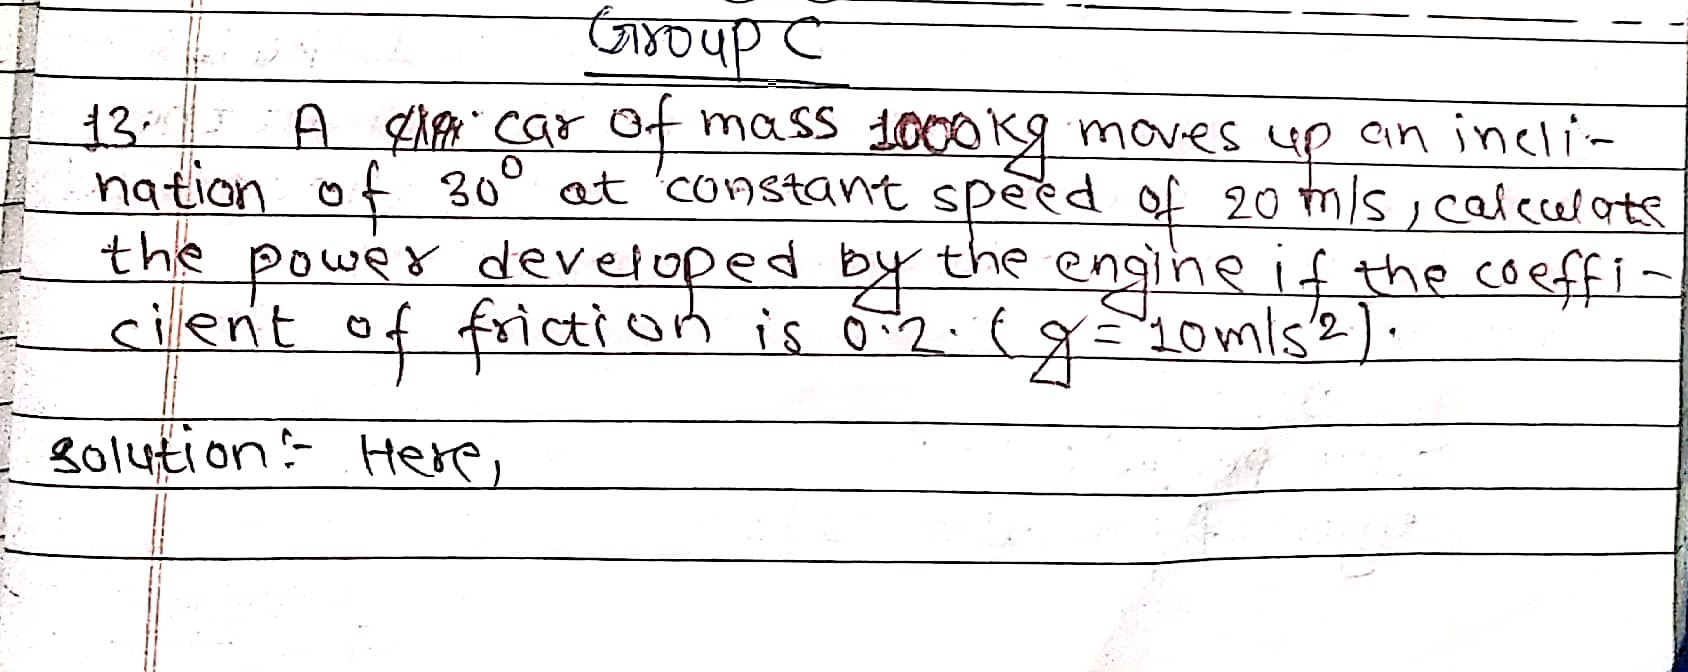 Group C
13. A car of mass 1000kg moves up an incli-
nation of 30° at constant speed of 20 m/s, calculate
the power developed by the engine if the coeffi-
cient of friction is 0.2. (g = 10m/s^2).
Solution:- Here,